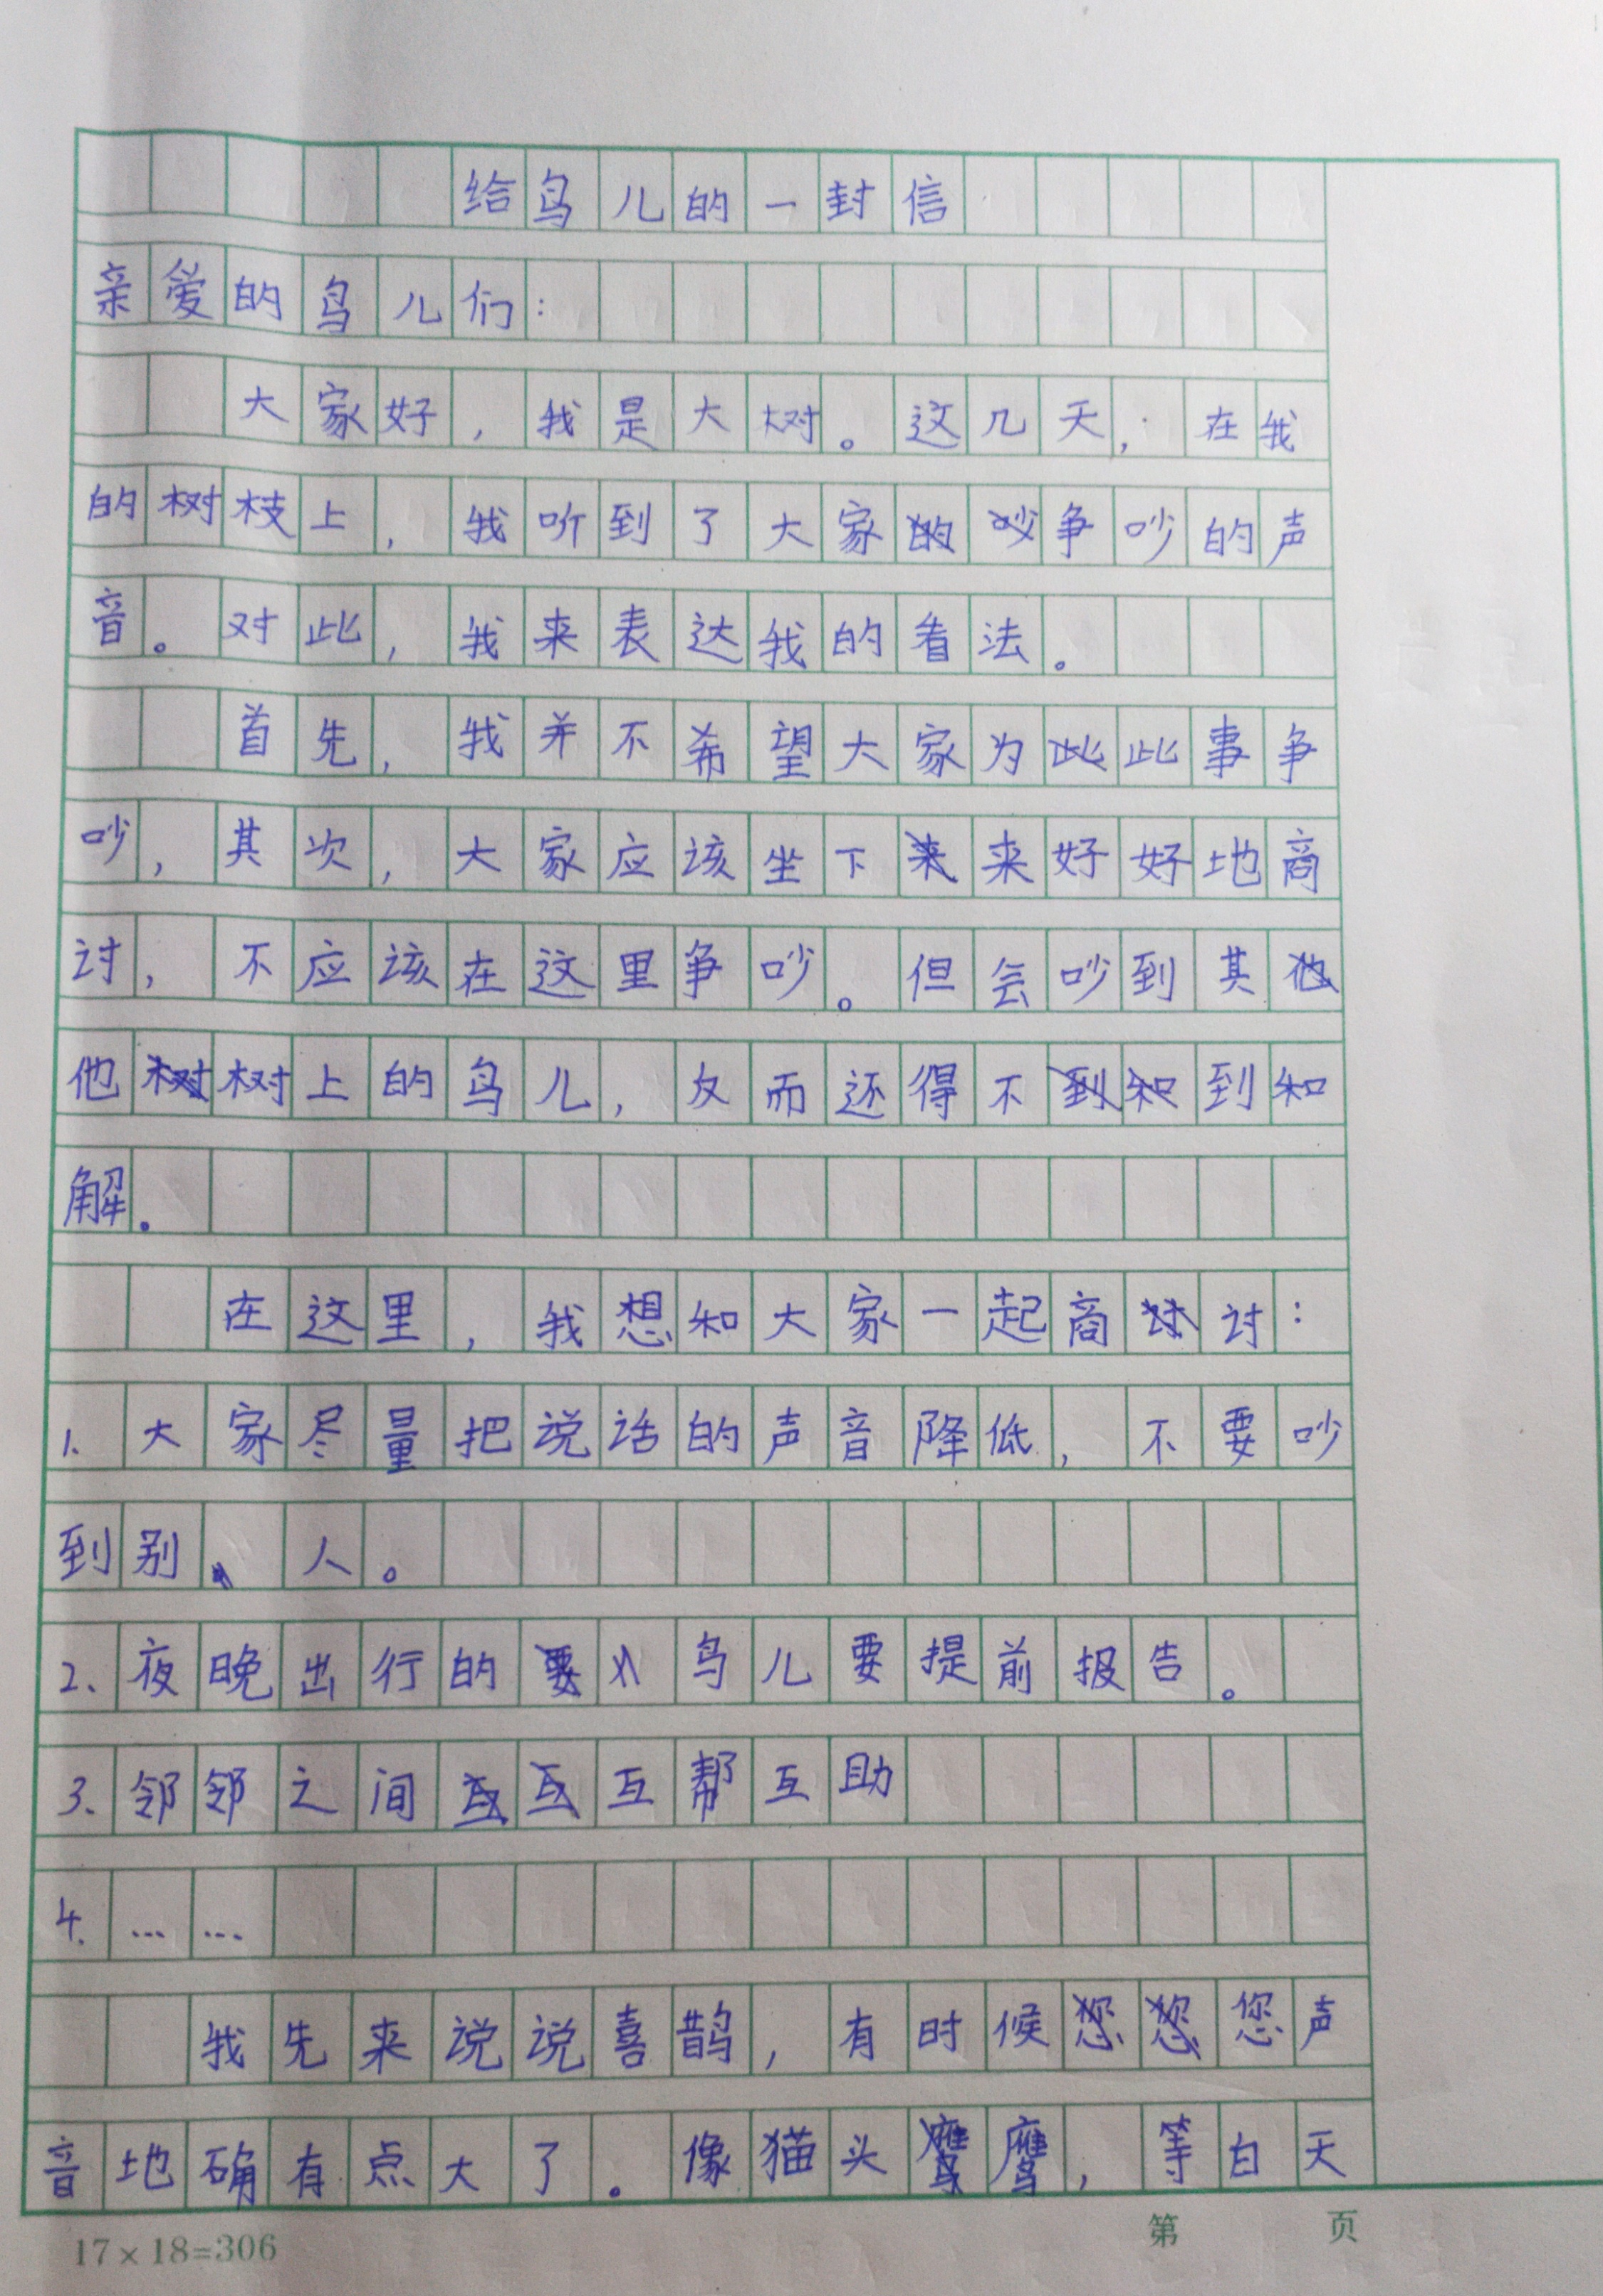 给鸟儿的一封信
亲爱的鸟儿们：
大家好，我是大树。这几天，在我
的树枝上，我听到了大家争吵的声
音。对此，我来表达我的看法。
首先，我并不希望大家为此事争
吵，其次，大家应该坐下来好好地商
讨，不应该在这里争吵。但会吵到其
他树上的鸟儿，反而还得不到和
解。
在这里，我想和大家一起商讨：
1.大家尽量把说话的声音降低，不要吵
到别人。
2、夜晚出行的鸟儿要提前报告。
3、邻邻之间互帮互助
4.……
我先来说说喜鹊，有时候您声
音地确有点大了。像猫头鹰，等白天
17×18=306
第 页